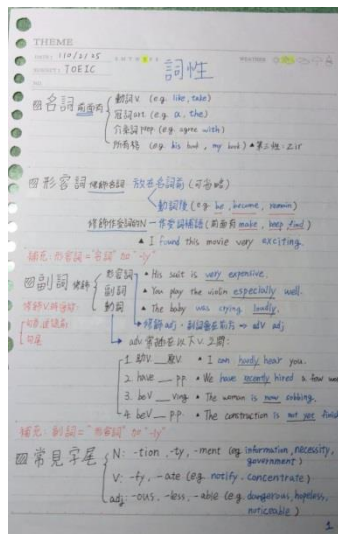 THEME
DATE: 110/2/25
SUBJECT: TOEIC
NO.
詞性
名詞 前面有
動詞V. (e.g. like, take)
冠詞art. (e.g. a, the)
介系詞prep (e.g. agree with)
所有格 (e.g. his book, my book)
形容詞 修飾名詞 放在名詞前 (可省略)
動詞後 (e.g. be, become, remain)
修飾作受詞的N → 作受詞補語 (前面有make, keep, find)
▲ I found this movie very exciting.
補充: 形容詞 = "名詞" to "-ly"
副詞 修飾
形容詞 • His suit is very expensive.
副詞 • You play the violin especially well.
動詞 • The baby was crying loudly.
句尾
修飾adj, 副詞要在前方 → adv adj
adv 常歸在以下V.之間:
1. 助V. __ 原V. • I can hardly hear you.
2. have __ pp. • We have recently hired a few wo
3. beV __ Ving • The woman is now sobbing.
4. beV __ P.P. • The construction is not yet finish
補充: 副詞 = "形容詞" to "-ly"
常見字尾
N: -tion, -ty, -ment (e.g. information, necessity, government)
V: -fy, -ate (e.g. notify, concentrate)
adj: -ous, -less, -able (e.g. dangerous, hopeless, noticeable)
1